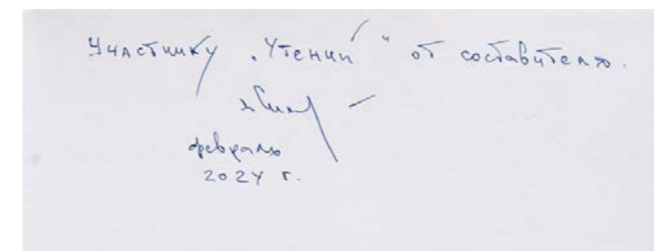 Участнику „Чтений“ от составителя.
февраль
2024 г.